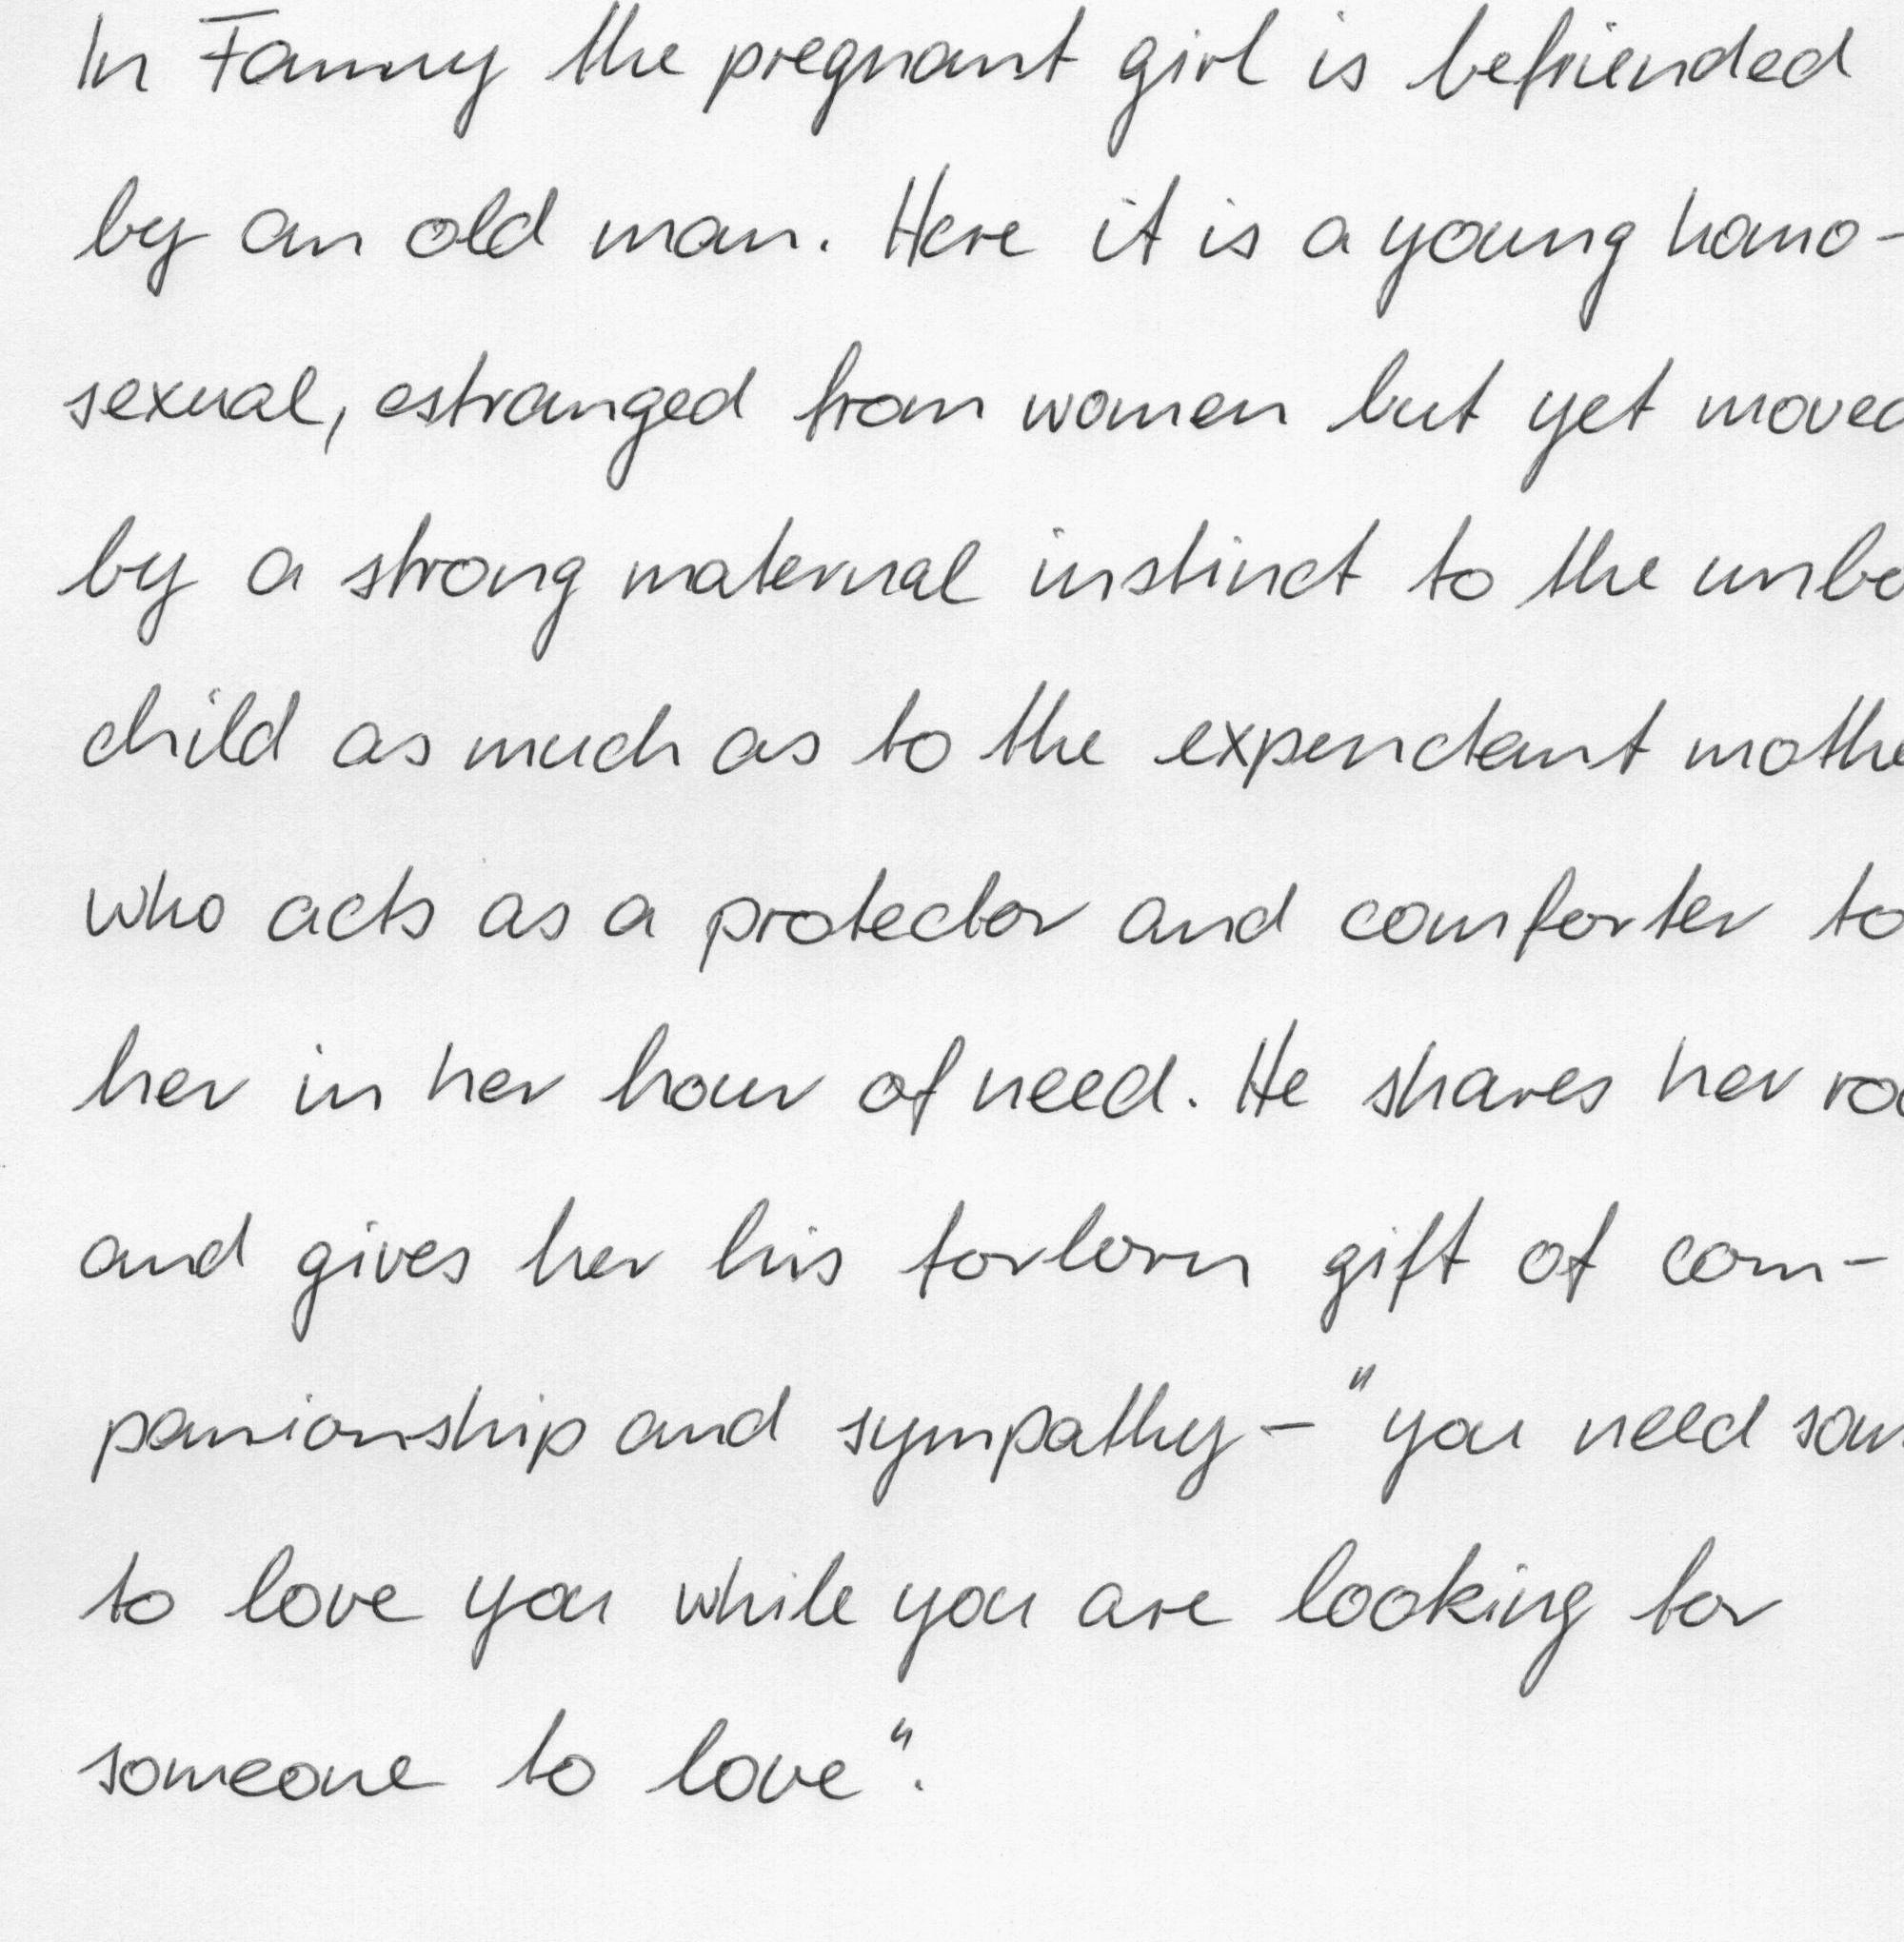 In Fanny the pregnant girl is befriended
by an old man. Here it is a young homo-
sexual, estranged from women but yet moved
by a strong maternal instinct to the
child as much as to the expenctant
who acts as a protector and comforter to
her in her hour of need. He shares her
and gives her his forlorn gift of com-
panionship and sympathy - "you need
to love you while you are looking for
someone to love".